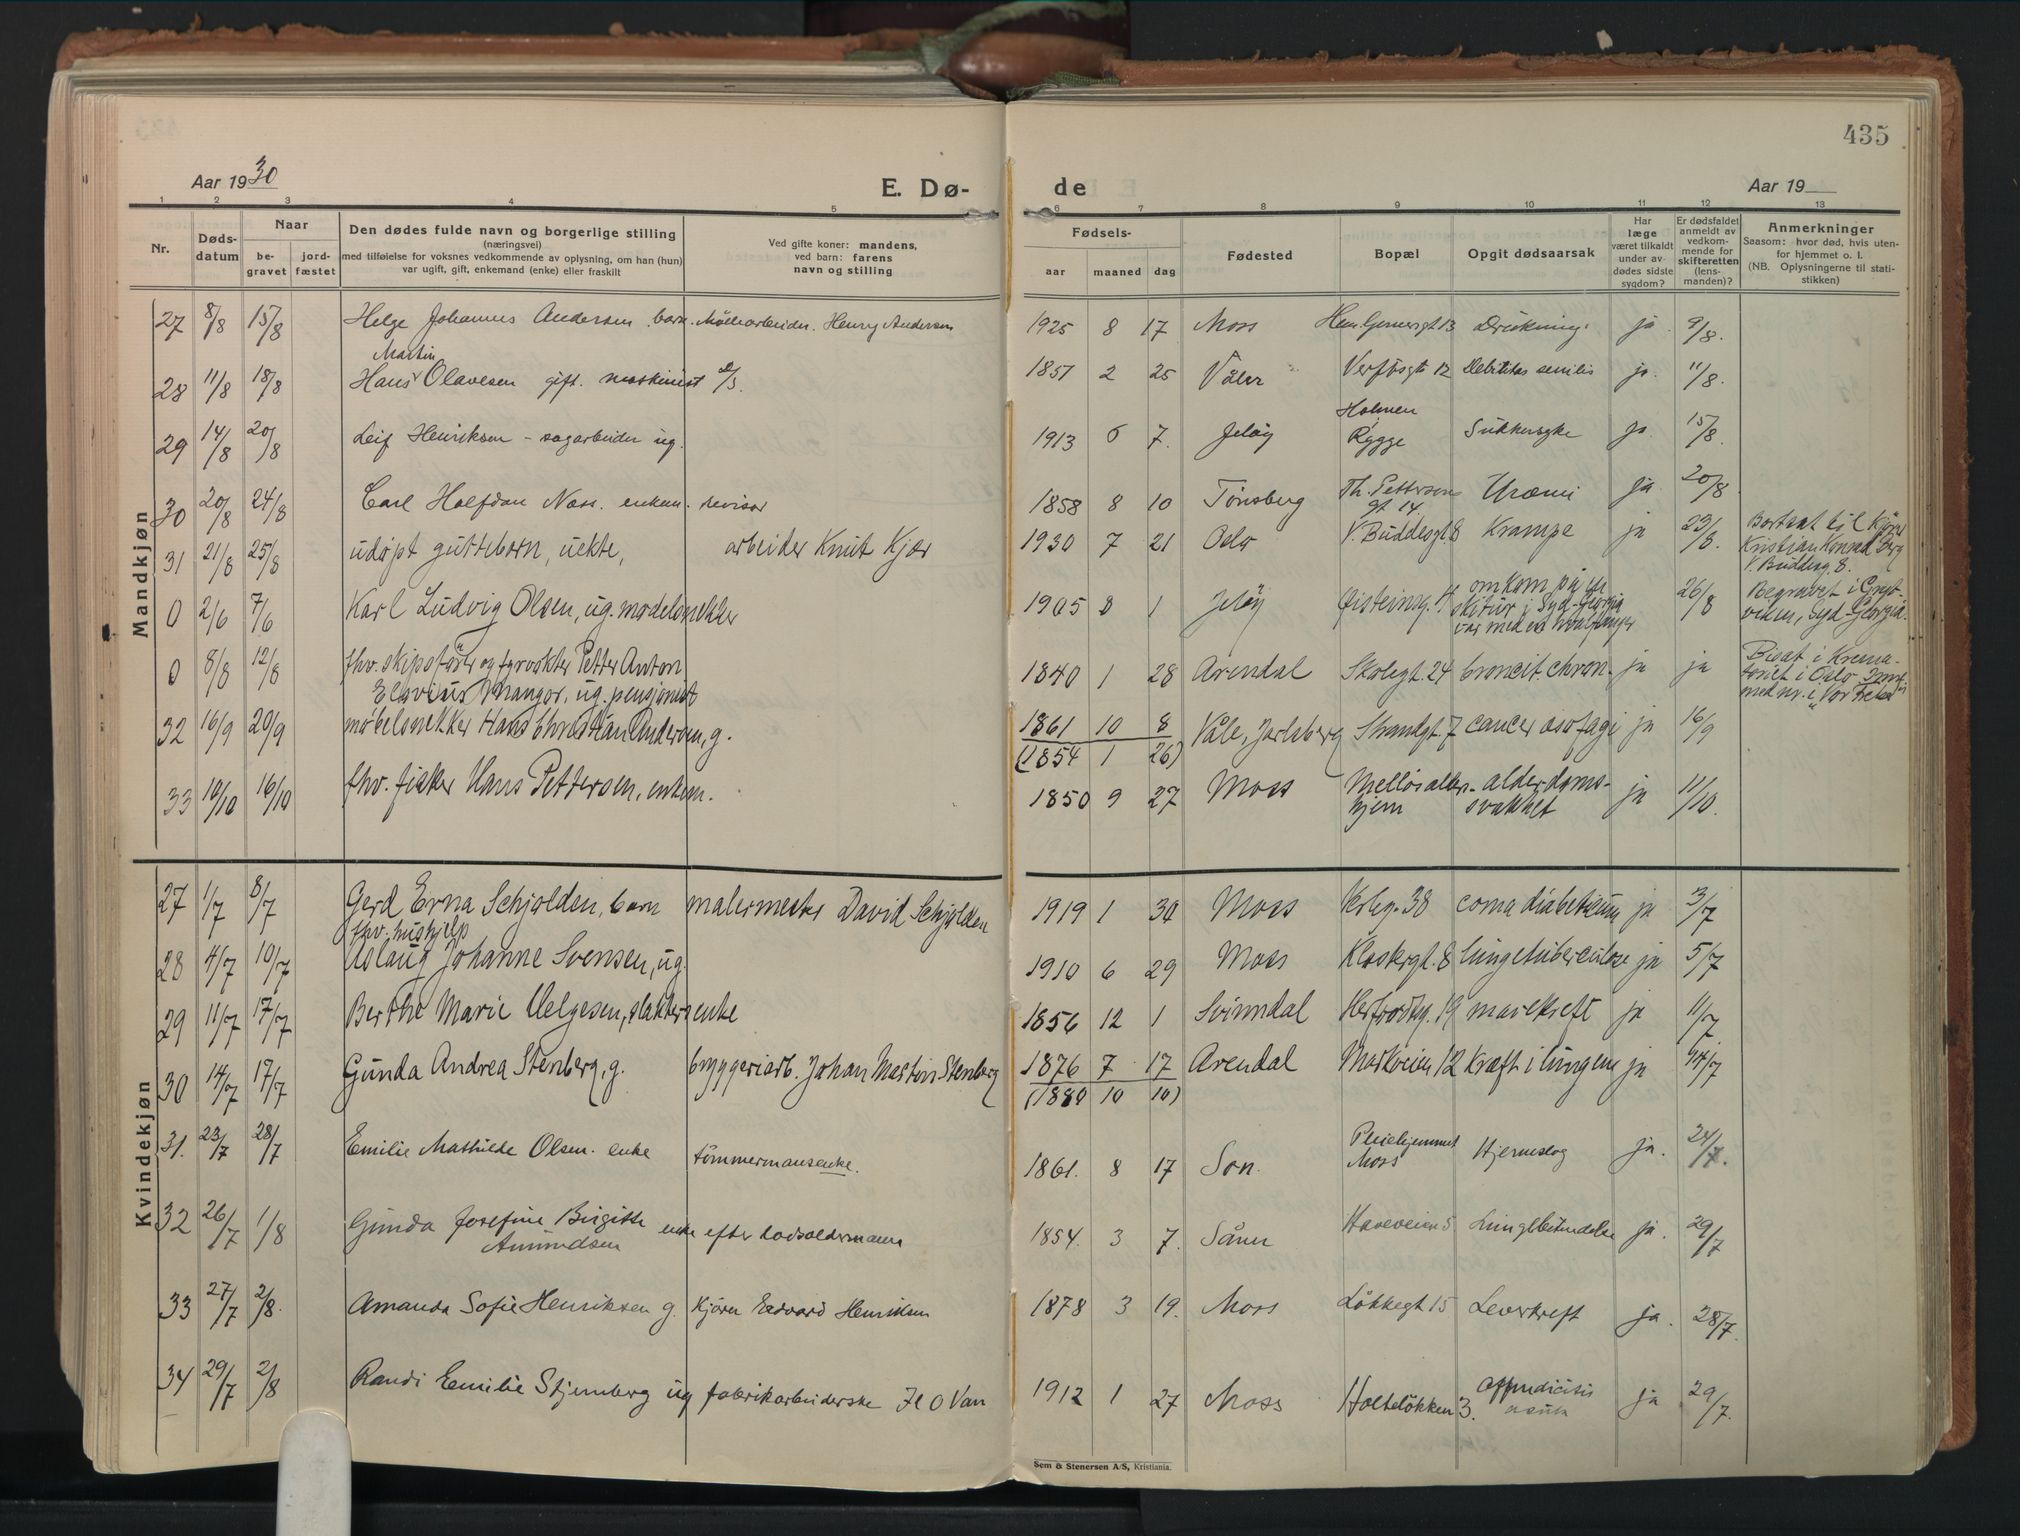 435
Aar 1930
E. Dø-
de
Aar 19
1 2 3 4 5 6 7 8 9 10 11 12 13
Nr.
Døds-
datum
Naar
be-
gravet
jord-
fæstet
Den dødes fulde navn og borgerlige stilling
(næringsvei)
med tilføielse for voksnes vedkommende av oplysning, om han (hun)
var ugift, gift, enkemand (enke) eller fraskilt
Ved gifte koner: mandens,
ved barn: farens
navn og stilling
Fødsels-
aar maaned dag
Fødested
Bopæl
Opgit dødsaarsak
Har
læge
været tilkaldt
under av-
dødes sidste
sygdom?
Er dødsfaldet
anmeldt av
vedkom-
mende for
skifteretten
(lens-
manden)?
Anmerkninger
Saasom: hvor død, hvis uten-
for hjemmet o. l.
(NB. Oplysningerne til stati-
stikken)
Mandkjøn
27 8/8 15/8 Helge Johannes Andersen barn. Möllearbeider. Henry Andersen 1925 8 17 Moss Drukning. ja 9/8.
Martin
28 11/8 18/8 Hans Olavesen gift. maskinist D/S. 1851 2 25 Våler Verftsgt 12 Debilitas senilis ja. 11/8.
29 14/8 20/8 Leif Henriksen - sagarbeider ug. 1913 6 7. Jeløy Holmen Rygge Sukkersyke ja. 15/8.
30 20/8 24/8 Carl Halfdan Næss. enkem. revisor 1858 8 10 Tönsberg Th. Petersens gt 14. Uræmi ja 20/8.
31 21/8 25/8 udøpt guttebarn, uekte, arbeider Knut Kjær 1930 7 21 Oslo V. Buddesgt. 8 Krampe ja 23/8. Bortsat til
Kristian Konrad Berg
V. Buddesg. 8.
0 2/6 7/6 Karl Ludvig Olsen, ug. modelsnekker 1905 8 1 Jeløy Øisteinsg. omkom på en
skitur i Syd-Georgia
var med en hvalfanger 26/8 Begravet i Gryt-
viken, Syd-Georgia.
0 8/8 12/8 fhv. skipsfører og fyrvokter Petter Anton
Mangor, ug. pensjonist 1840 1 28 Arendal Skolegt. 24 broncit. chron. ja ja Bisat i Krema-
toriet i Oslo
32 16/9 20/9 møbelsnekker Hans Christian Andersen, g. 1861 10 8
(1854 1 26) Våle, Jarlsberg Strandgt. 7 cancer øsofagi ja 16/9
33 10/10 16/10 fhv. fisker Hans Pettersen, enkem. 1850 9 27 Moss Melløs alders-
hjem alderdoms-
svakhet ja 11/10.
Kvindekjøn
27 1/7 8/7 Gerd Erna Schjolden, barn malermester David Schjolden 1919 1 30 Moss 38 coma diabeticum ja 3/7
fhv. hushjelp
28 4/7 10/7 Aslaug Johanne Svensen, ug. 1910 6 29 Moss Klostergt. 8 lungetuberculose ja 5/7
29 11/7 17/7 Berthe Marie Helgesen, slakterenke 1856 12 1 Svinndal 19 mavekreft ja 11/7.
30 14/7 17/7 Gunda Andrea Stenberg, g. bryggeriarb. Johan Martin Stenberg 1876 7 17
(1880 10 10) Arendal Markveien 12 Kræft i lungene ja 14/7
31. 23/7 28/7 Emilie Mathilde Olsen. enke tömmermansenke. 1861. 8 17 Son. Pleiehjemmet
Moss Hjerneslag ja. 24/7.
32 26/7 1/8 Gunda Josefine Birgitte
Amundsen enke efter lodsoldermann 1854. 3 7. Såner Haveveien 5 Lungebetændelse ja. 29/7
33 27/7 2/8. Amanda Sofie Henriksen g. Kjører Edvard Henriksen 1878 3 19. Moss Løkkegt 15 Leverkreft ja. 28/7.
34 29/7 2/8 Randi Emilie Stjernberg ug fabrikarbeiderske 1912 1 27 Moss Holteløkken 3. Appendicitis
acuta ja 29/7.
Sem & Stenersen A/S, Kristiania.